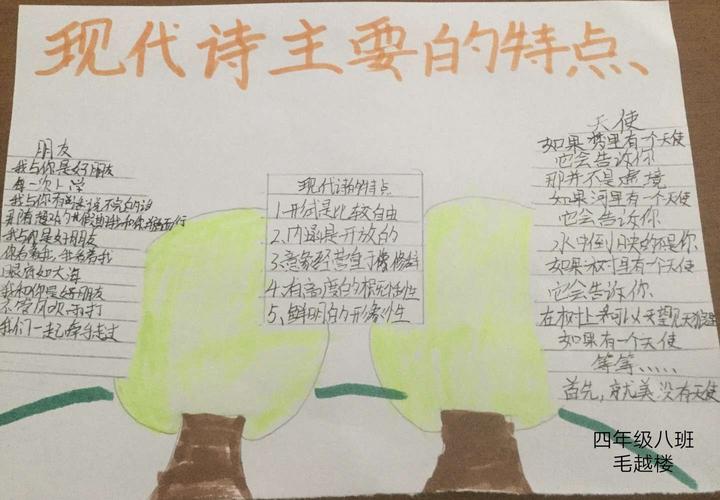 现代诗主要的特点
朋友
我与你是好朋友
每一次上学
我与你有说不完的话
我与你是好朋友
你看着我,我看着我
眼睛如大海
我和你是好朋友
不管风吹雨打
我们一起牵手走过
现代诗的特点
1、形式是比较自由
2、内涵是开放的
3、意象经营重于修辞
4、有高度的概括性
5、鲜明的形象性
天使
如果梦里有一个天使
它会告诉你
那并不是虚境
如果河里有一个天使
它会告诉你
水中倒映的还是你
如果树里有一个天使
它会告诉你
在树上可以天望见
如果有一个天使
等等……
首先,就美没有天使
四年级八班
毛越楼